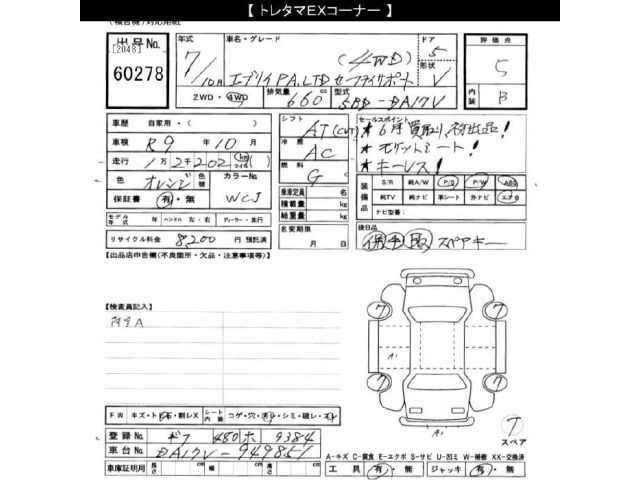 【 トレタマEXコーナー 】
(検査機)対応用紙
出品号No. [2048] 60278
年式 7/10月
車名・グレード エブリイPA.LTD セーフティサポート (4WD)
ドア 5
形状 V
2WD・4WD
排気量 660 cc
型式 5BD-DA17V
評価点 5
内装 B
車歴 自家用・( )
車検 R9年10月
走行 1万2千202 (km マイル)( )
色 オレンジ 色替
カラーNo. WCJ
保証書 有・無
モデル年式 年 ハンドル 左・右 ディーラー・並行
リサイクル料金 8,200 円 預託済
シフト AT(CVT)
冷房 AC
燃料 G
乗車定員 名
積載量 kg
総重量 kg
名変期限 月 日
セールスポイント
★ 6月買取り、初出品!
★ モケットシート!
★ キーレス!
装備品 S/R 純A/W P/S P/W ABS
純TV 純ナビ 革シート 外ナビ エアB
ナビ型番:
後日品
保 手 取 スペアキー
【出品店申告欄(不良箇所・欠品・注意事項等)】
【検査員記入】
内exterior A
F W キズ・トビ石・割レX シート内装 コゲ・穴・汚レ・シミ・破レ・スレ
登録No. ギフ 480 ホ 9384
車台No. DA17V-949851
車庫証明用 長さ cm 幅 cm 高さ cm
7 7 7 7
A1
A1
7 スペア
A-キズ C-腐食 E-エクボ S-サビ U-凹ミ W-補修 XX-交換済
工具 有・無 ジャッキ 有・無